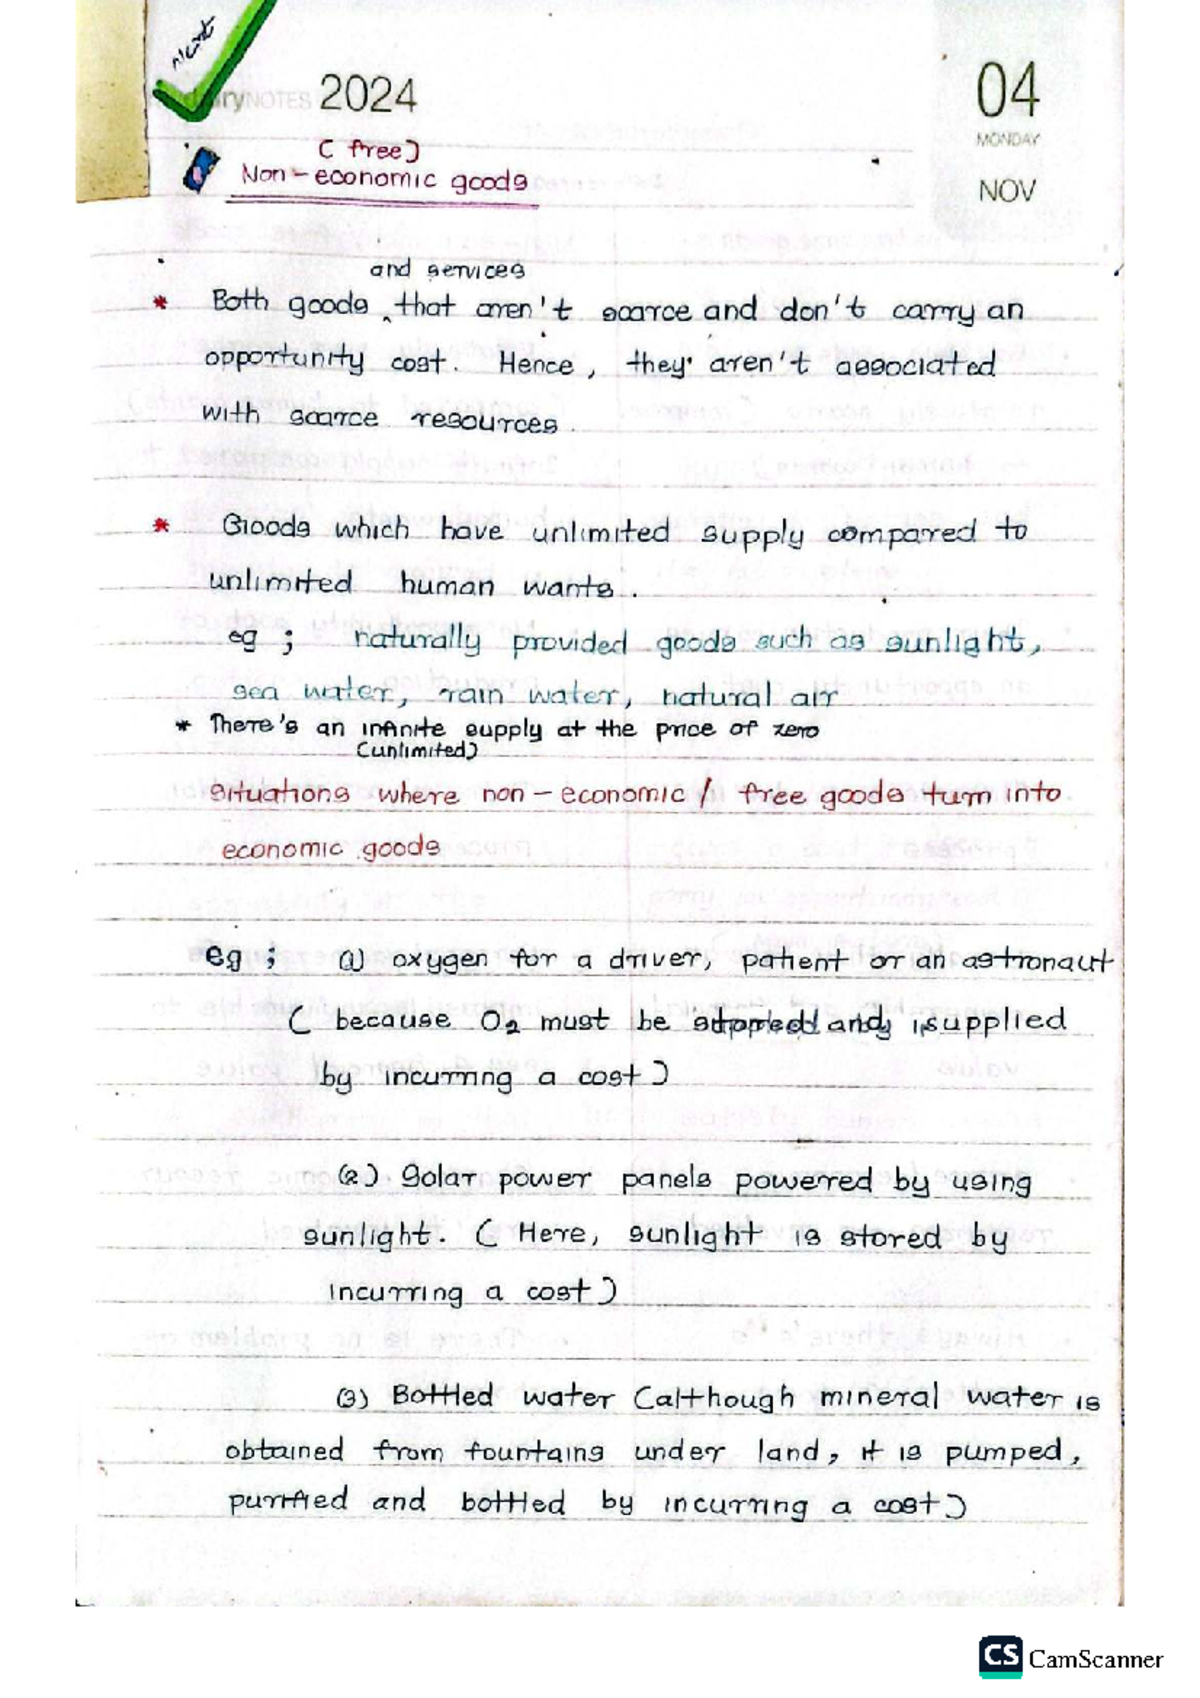 NOTES 2024
04
MONDAY
NOV
(free)
Non-economic goods
and services
* Both goods ‸ that aren't scarce and don't carry an
opportunity cost. Hence, they aren't associated
with scarce resources.
* Goods which have unlimited supply compared to
unlimited human wants.
eg ; naturally provided goods such as sunlight,
sea water, rain water, natural air
* There's an infinite supply at the price of zero
(unlimited)
situations where non-economic / free goods turn into
economic goods
Eg ; (1) oxygen for a driver, patient or an astronaut
( because O2 must be and supplied
by incurring a cost)
(2) Solar power panels powered by using
sunlight. ( Here, sunlight is stored by
incurring a cost)
(3) Bottled water (although mineral water is
obtained from fountains under land, it is pumped,
purified and bottled by incurring a cost)
CS CamScanner